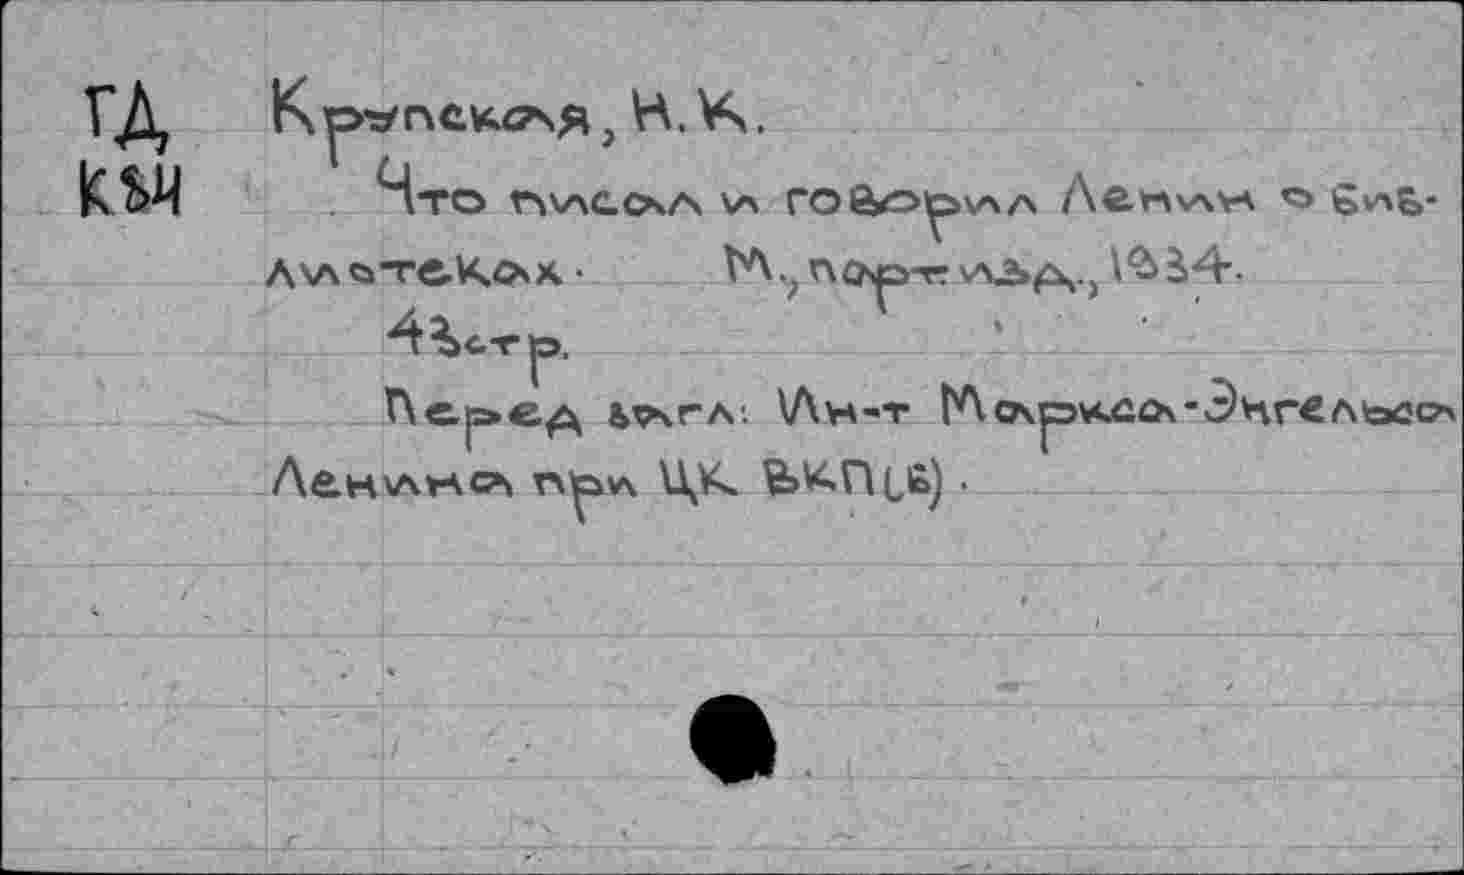 ГД Крупская, Н.К.
К84 Что писал и говорил Ленин о биб-
лиотеках. М., парт. изд., 1934.
43стр.
Перед загл: Ин-т Маркса-Энгельса
Ленина при ЦК ВКП(б).